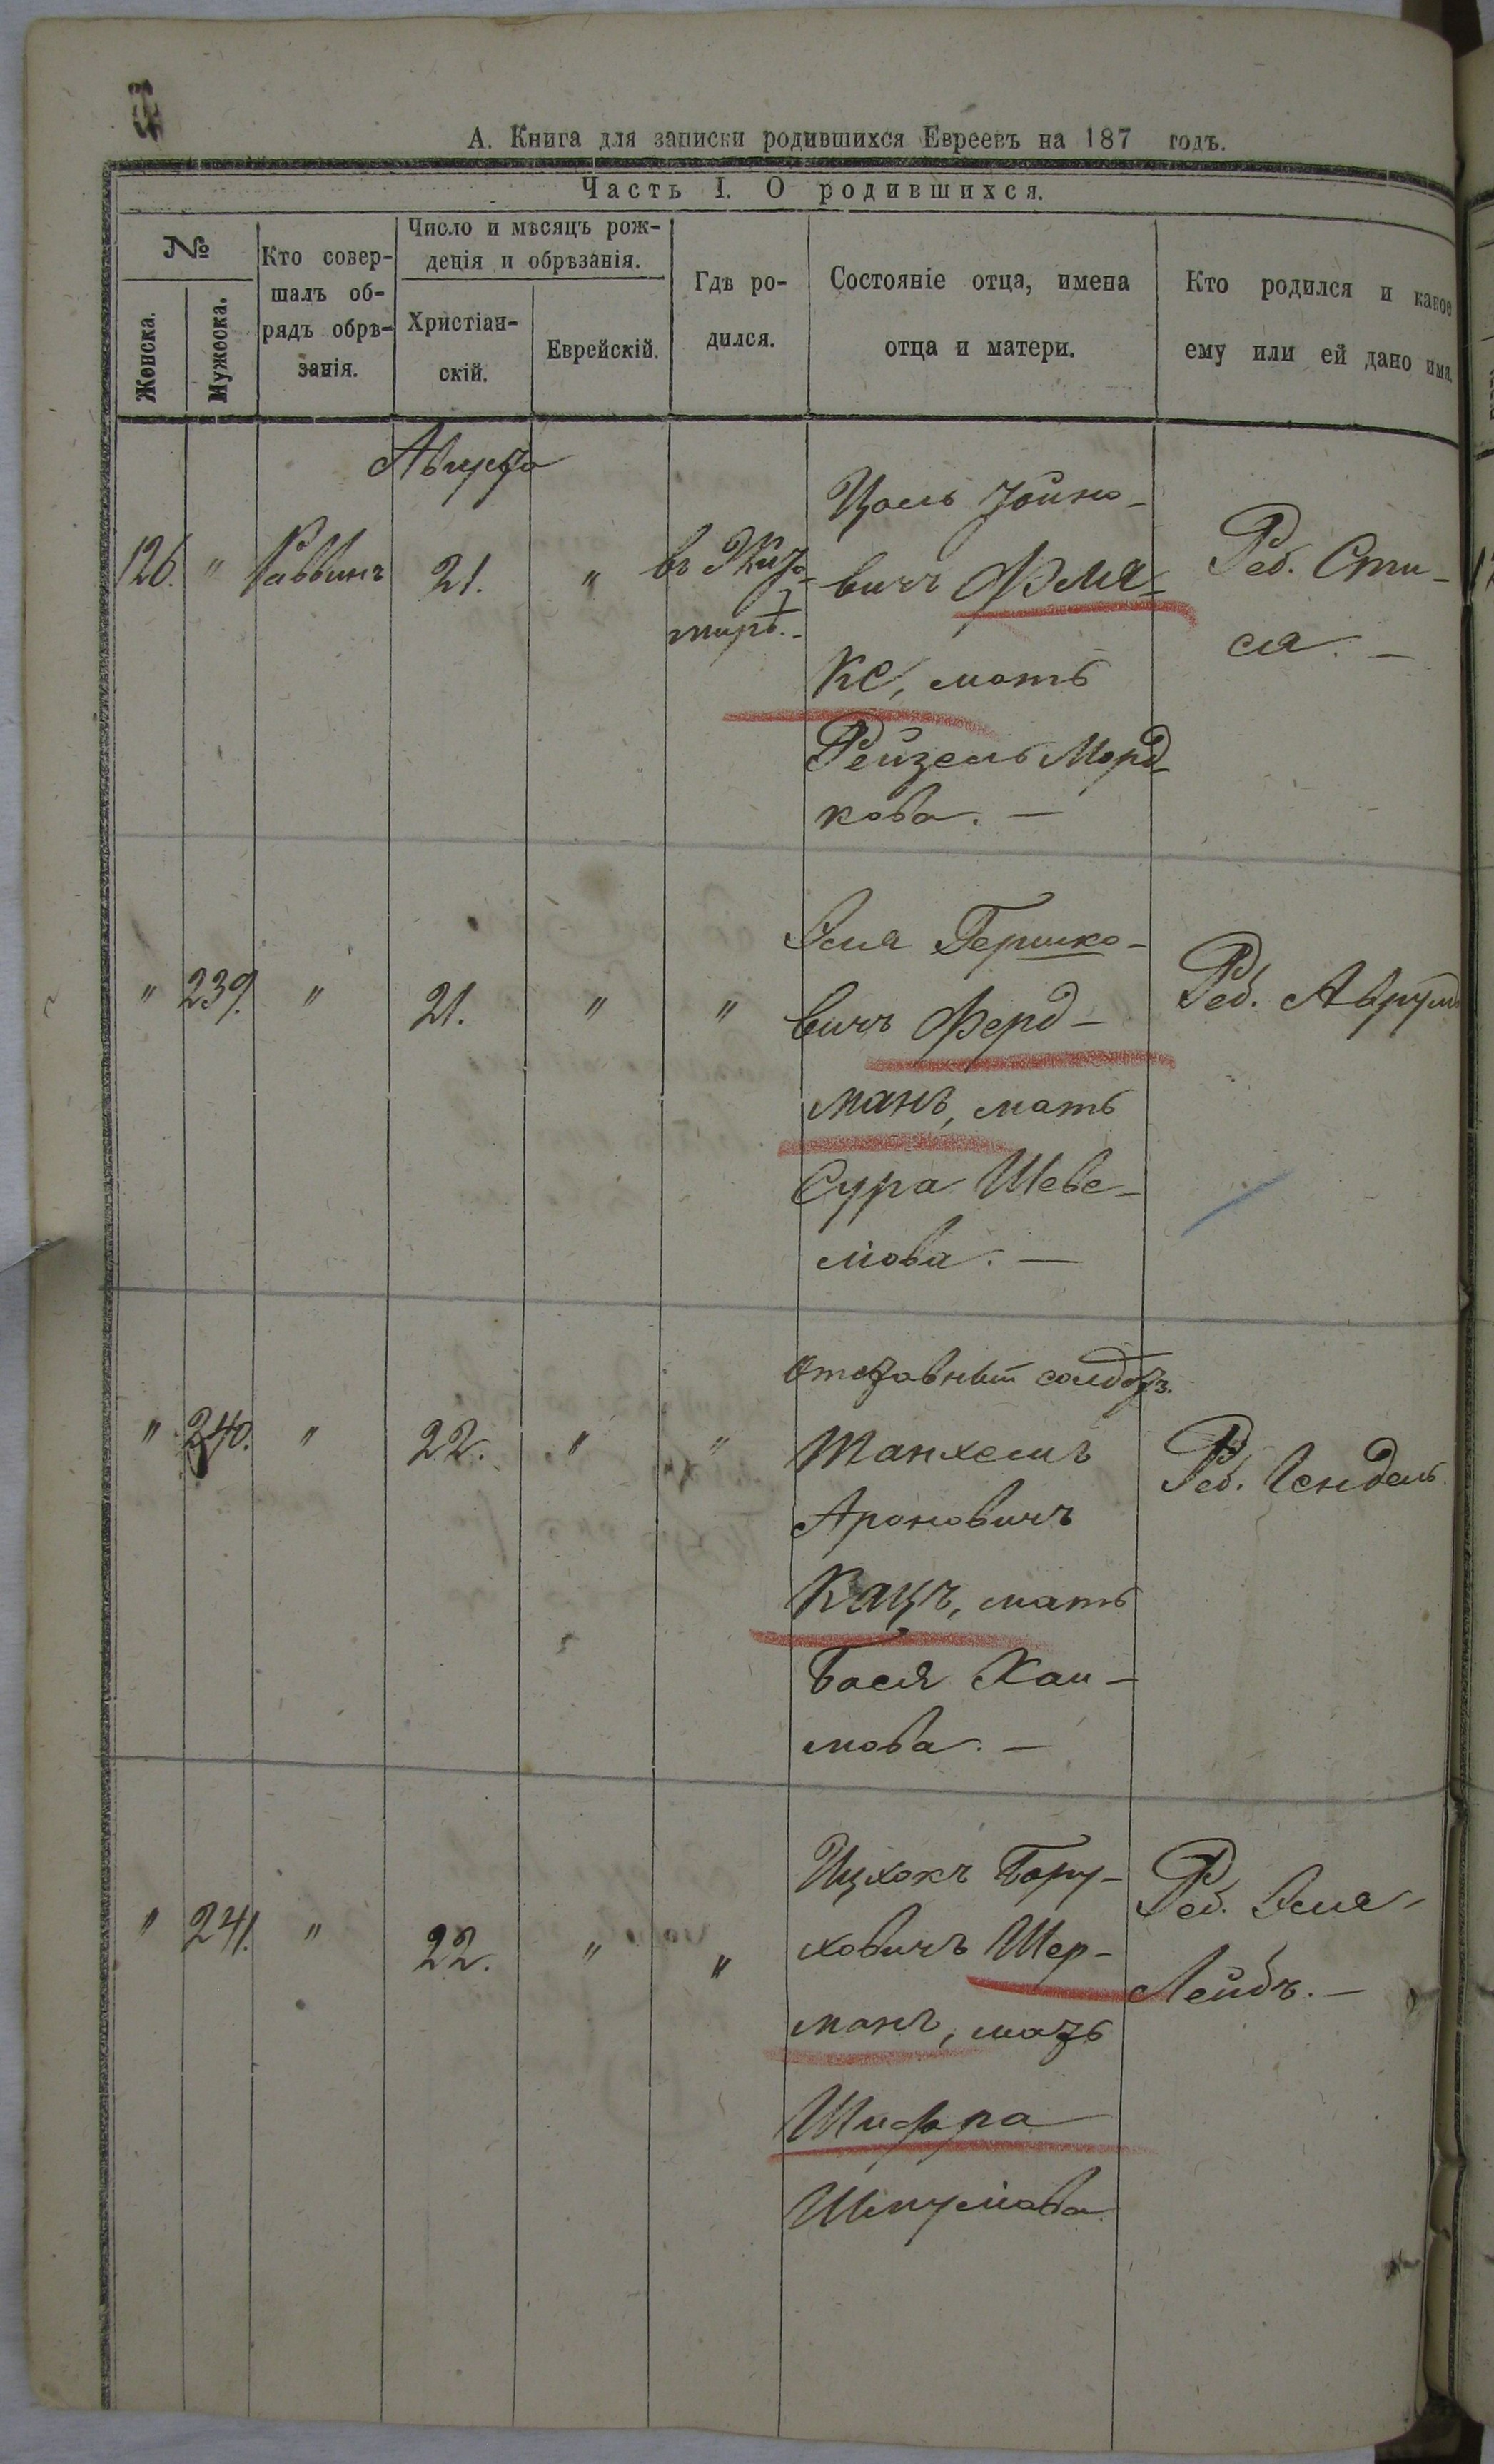 А. Книга для записки родившихся Евреевъ на 187 годъ.
Часть I. О родившихся.
№
Женска.
Мужеска.
Кто совер-
шалъ об-
рядъ обрѣ-
занія.
Число и мѣсяцъ рож-
денія и обрѣзанія.
Христіан-
скій.
Еврейскій.
Гдѣ ро-
дился.
Состояніе отца, имена
отца и матери.
Кто родился и какое
ему или ей дано имя.
Августа
126. " Раввинъ 21. "
въ Жито-
мирѣ.-
вичъ Фля-
ксъ, мать
Рейзель Морд-
кова. —
Реб. Сти-
ся. —
" 239. " 21. " "
Эля Гершко-
вичъ Ферд-
манъ, мать
Сура Шеве-
лiова. —
Реб. Аврумъ
" 240. " 22. " "
Отставный солдатъ.
Танхелъ
Ароновичъ
Кацъ, мать
Бася Хаи-
мова. —
Реб. Гендель.
" 241. " 22. " "
Ицхокъ Бору-
ховичъ Шер-
манъ, мать
Шифра
Шмулiова
Реб. Эля-
Лейбъ. —